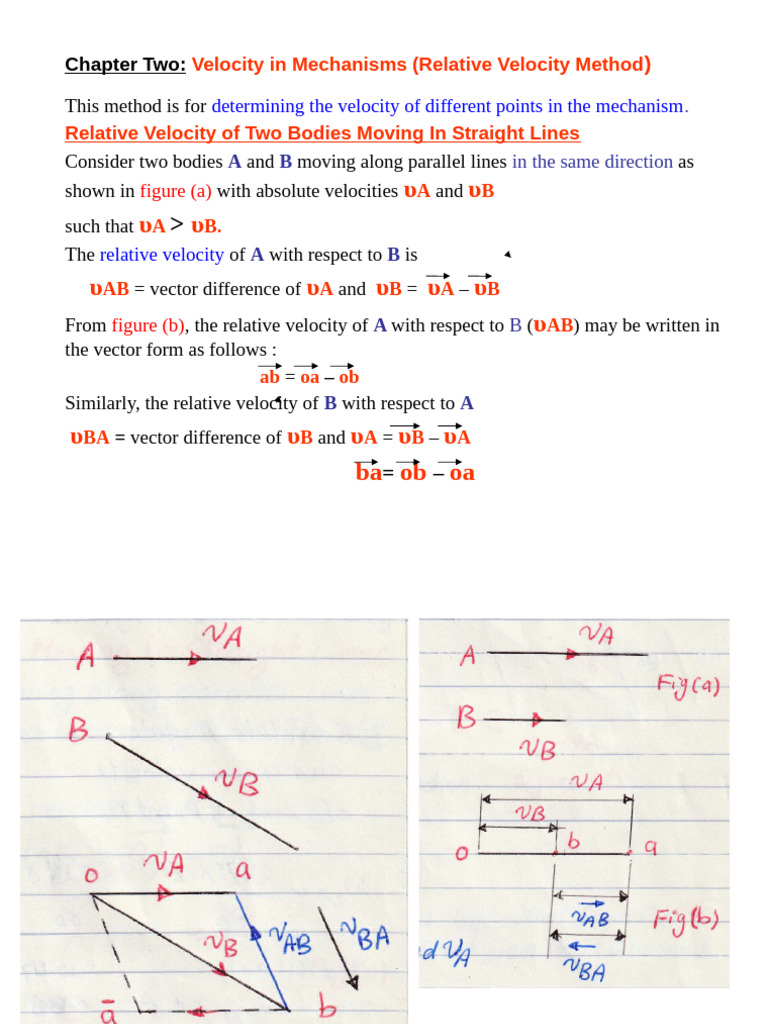 Chapter Two: Velocity in Mechanisms (Relative Velocity Method)
This method is for determining the velocity of different points in the mechanism.
Relative Velocity of Two Bodies Moving In Straight Lines
Consider two bodies A and B moving along parallel lines in the same direction as
shown in figure (a) with absolute velocities υA and υB
such that υA > υB.
The relative velocity of A with respect to B is
υAB = vector difference of υA and υB = υA – υB
From figure (b), the relative velocity of A with respect to B (υAB) may be written in
the vector form as follows :
ab = oa – ob
Similarly, the relative velocity of B with respect to A
υBA = vector difference of υB and υA = υB – υA
ba= ob – oa
A vA
B
vB
o vA a
vB vAB vBA
ā b
A vA
Fig(a)
B
vB
vA
vB
o b a
vAB Fig(b)
d vA
vBA